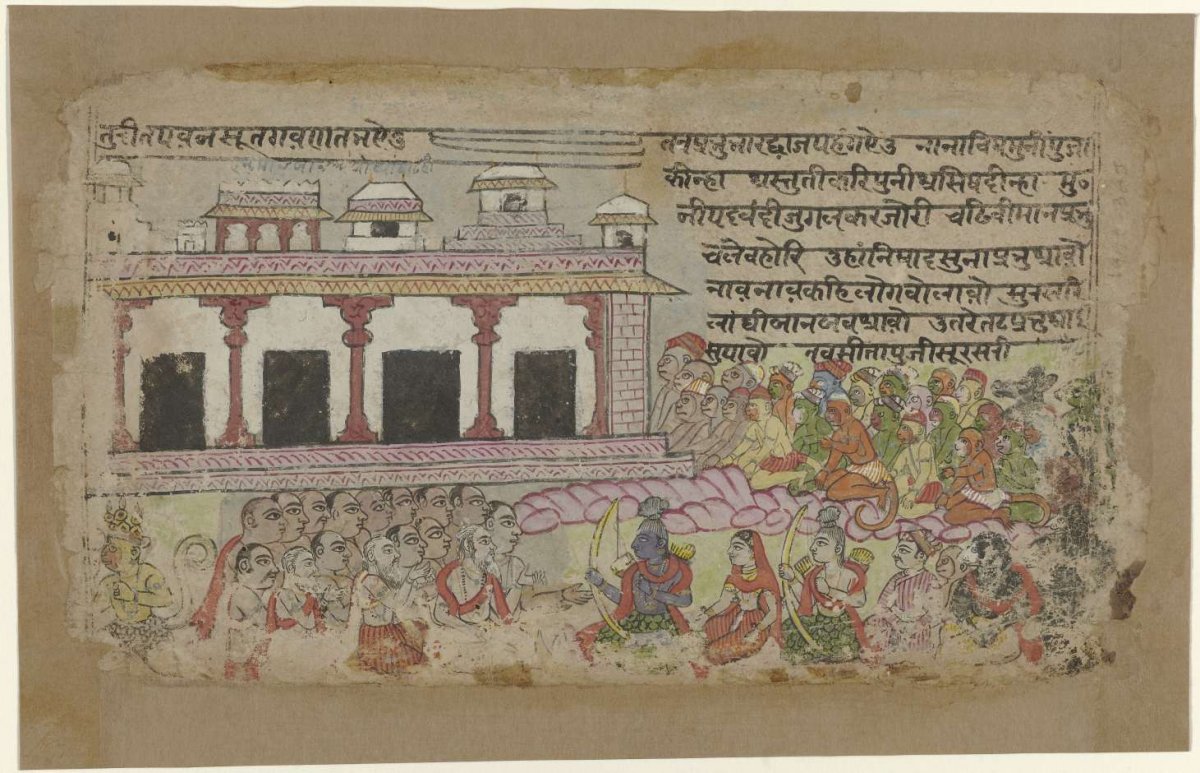 तुरीतपवनसूतगवणतभऐउ तबप्रभुभारद्वाजपहंगऐउ नानाविधमुनींपुजा
कीन्हा अस्तुतीकरिपुनीअसिषदीन्हा मु॰
नीपदवंदीजुगलकरजोरी चढिवीमानप्रभु
चलेवहोरि उहांनिषादसुनाप्रभुआवौ
नावनावकहिलोगवोलावो सुरसरी
लांघीजानजवआवो उतरेतटप्रभुआइ
सुपावो तवसीतापुजीसूरसरी